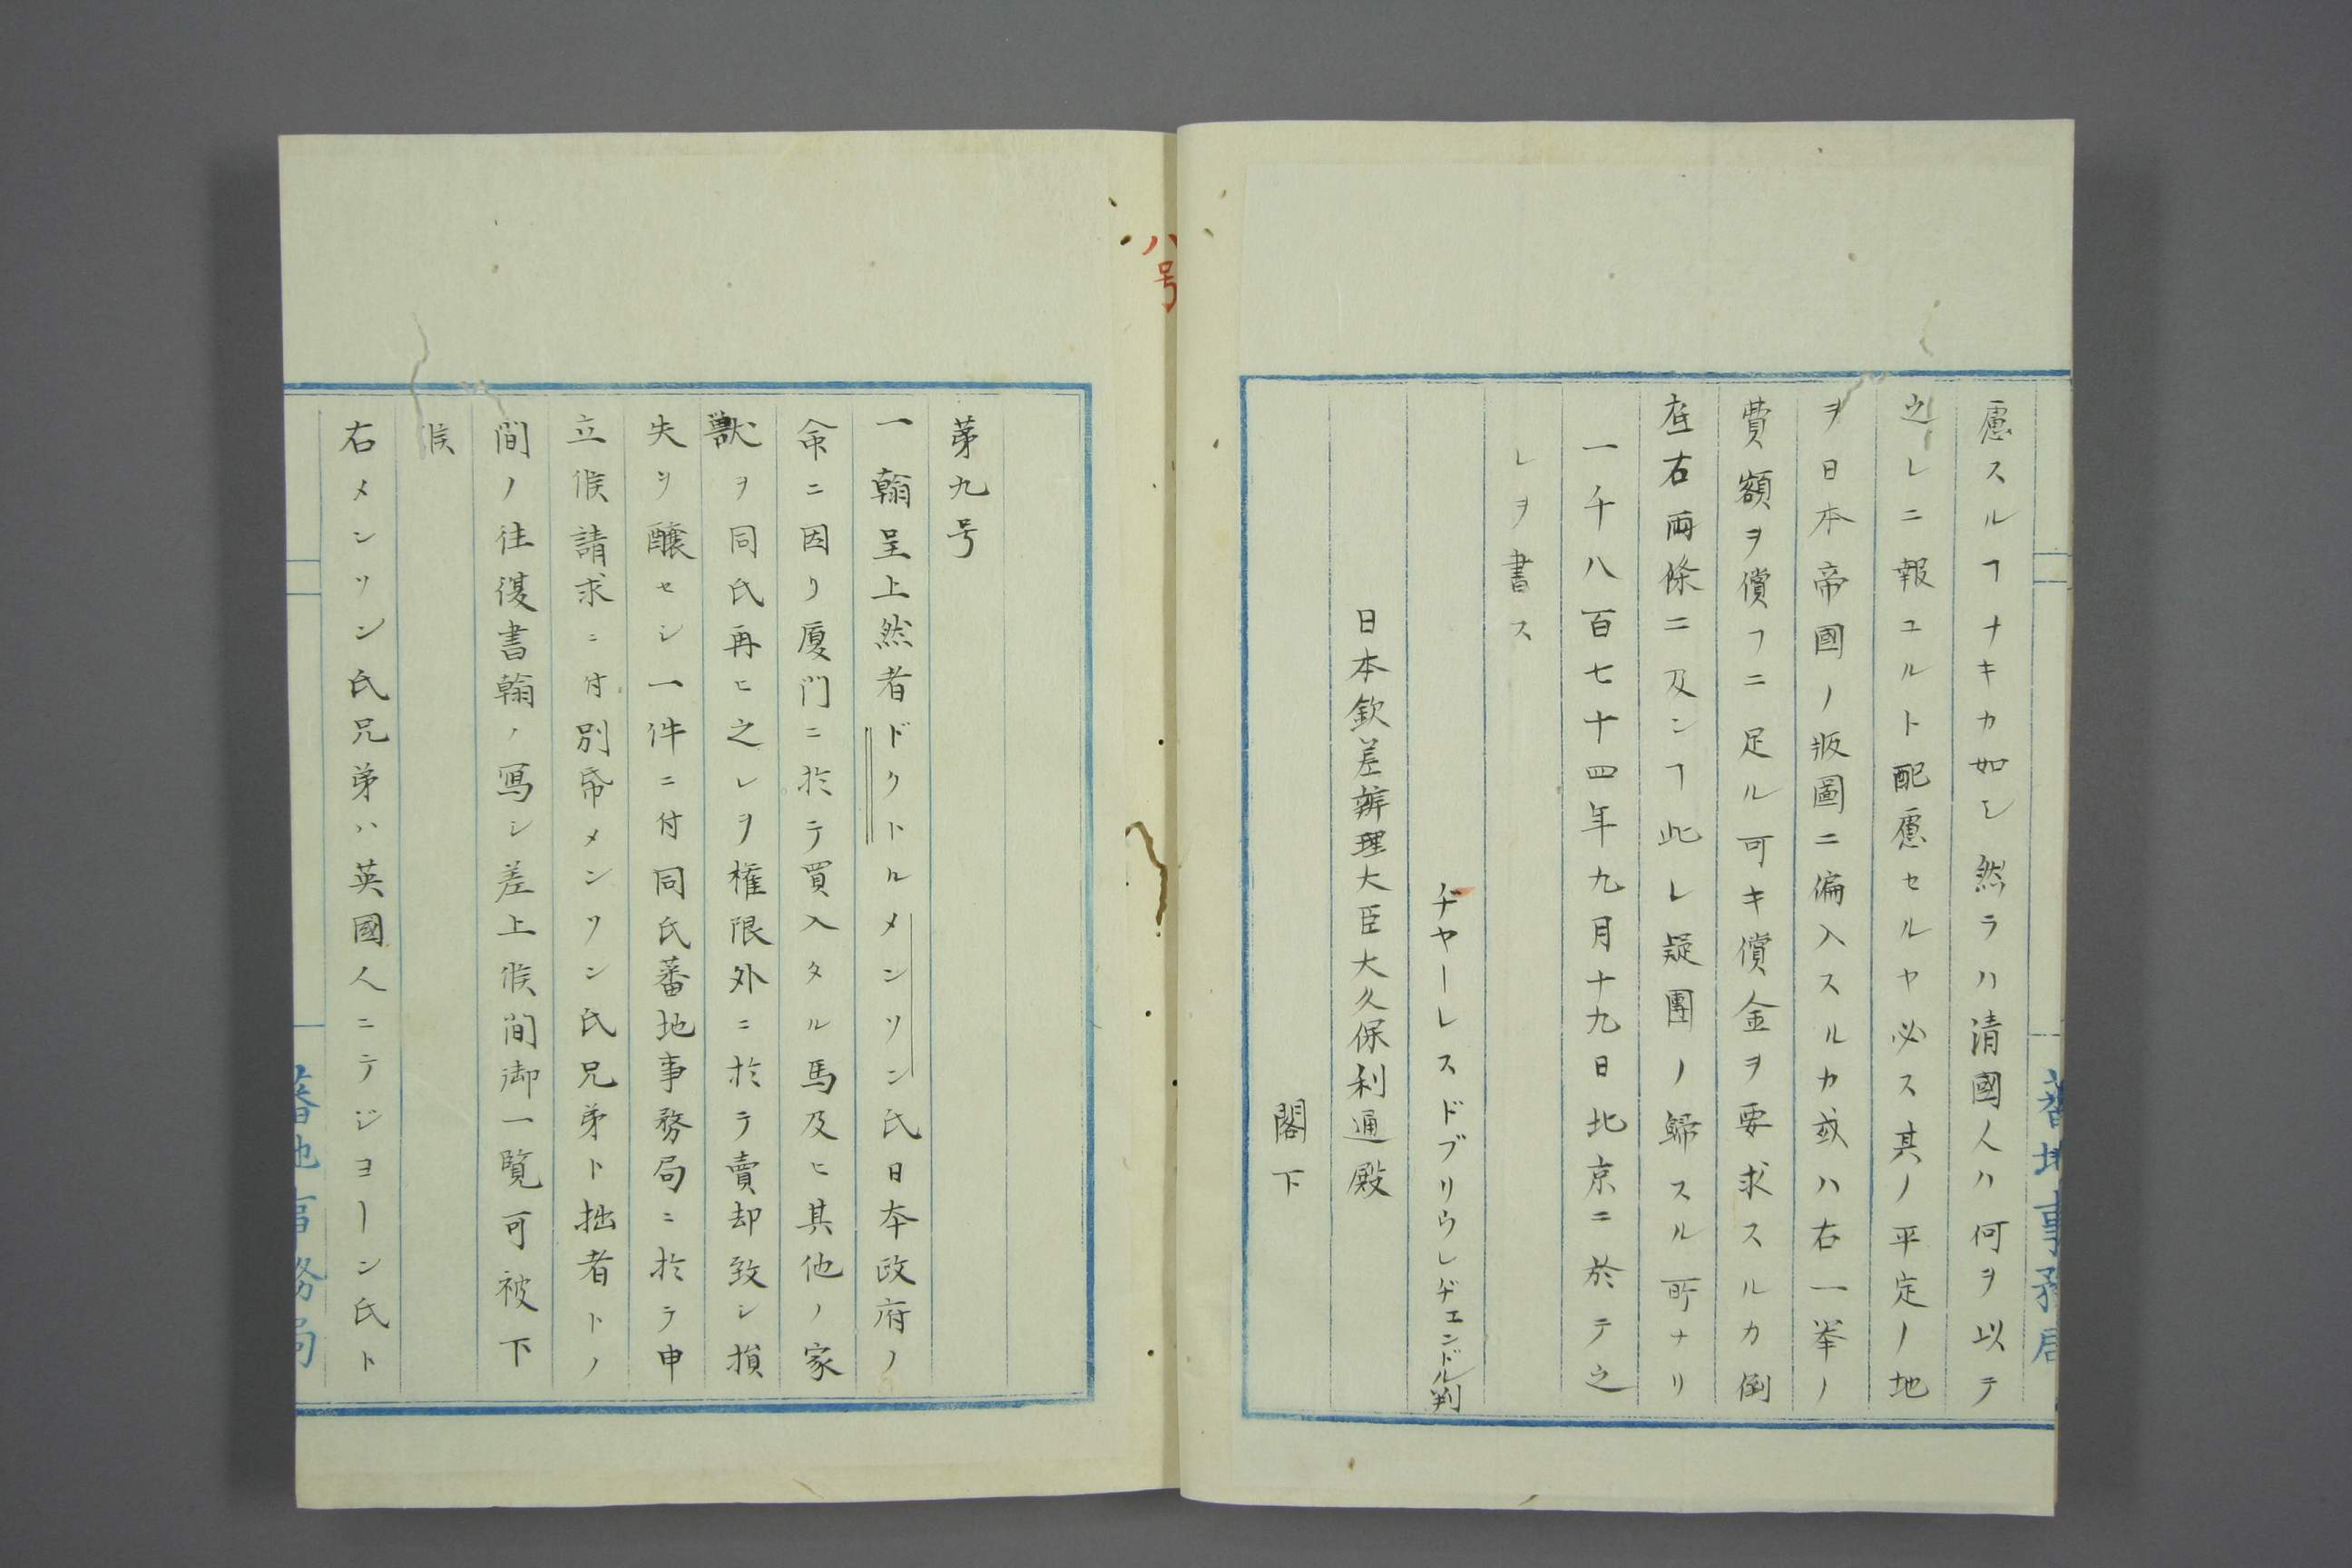 慮スルヿナキカ如シ然ラハ清國人ハ何ヲ以テ
之レニ報ユルト配慮セルヤ必ス其ノ平定ノ地
ヲ日本帝國ノ版圖ニ偏入スルカ或ハ右一挙ノ
費額ヲ償フニ足ル可キ償金ヲ要求スルカ倒
底右両條ニ及ンヿ此レ疑團ノ歸スル所ナリ
一千八百七十四年九月十九日北京ニ於テ之
レヲ書ス
ヂヤーレスドブリウレヂエンドル判
日本欽差辨理大臣大久保利通殿
閣下
蕃地事務局
八号
第九号
一翰呈上然者ドクトルメンソン氏日本政府ノ
命ニ因リ厦門ニ於テ買入タル馬及ヒ其他ノ家
獣ヲ同氏再ヒ之レヲ権限外ニ於テ賣却致シ損
失ヲ醸セシ一件ニ付同氏蕃地事務局ニ於テ申
立候請求ニ付別帋メンソン氏兄弟ト拙者トノ
間ノ往復書翰ノ寫シ差上候間御一覧可被下
候
右メンソン氏兄弟ハ英國人ニテジヨーン氏ト
蕃地事務局